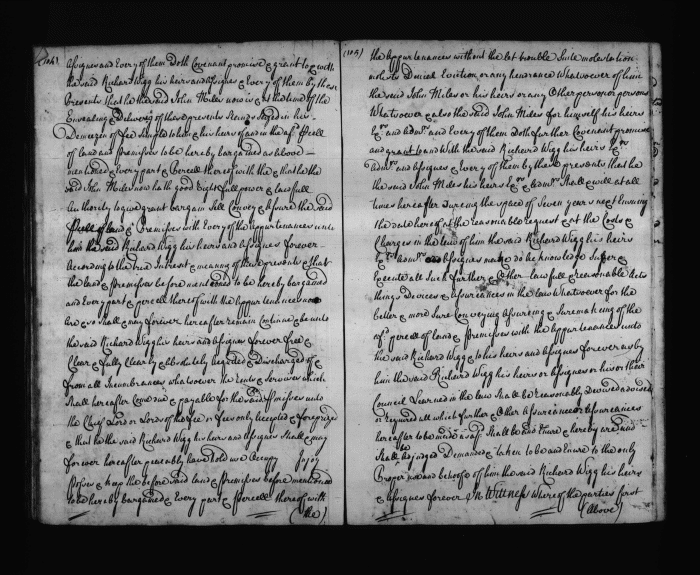 (104)
Assignes and Every of them doth Covenant promise & grant to & with
the said Richard Wigg his heirs and Assignes & Every of them by these
Presents that he the said John Miles now is & at the time of the
Ensealing & Delivery of these presents stands seized in his
Demeezen of fee simple to him & his heirs of and in the afsd. Pcell
of land and premisses to be hereby bargained as above
mentioned & every part & Percell thereof with the & that he the
said John Miles now hath good Right full power & lawfull
Authority to give grant bargain Sell Convey & Assure the said
Pcell of land & Premisses with Every of the Appurtenances unto
him the said Richard Wigg his heirs and Assignes forever
According to the true Interest & meaning of these presents & that
the land & premisses before mentioned to be hereby bargained
and Every part & percell thereof with the Appurtenances now
are & so shall & may forever hereafter remain Continue & be unto
the said Richard Wigg his heirs and Assignes forever free &
Clear & fully Clearly & Absolutely Acquitted & Discharged of &
from all Incumbrances whatsoever the rents & services which
Shall hereafter Come due & payable for the said Premisses unto
the Chief Lord or Lords of the fee or fees only Accepted & foreprized
& that he the said Richard Wigg his heirs and Assignes Shall & may
forever hereafter peaceably have hold use Occupy Injoy
Posses & keep the before said land & Premisses before mentioned
to be hereby bargained & Every part & Percell thereof with
(the)
(105)
the Appurtenances without the let trouble Suite molestation
Deniall Eviction or any hindrance Whatsoever of him
the said John Miles or his heirs or any Other person or persons
Whatsoever & also the said John Miles for himself his heirs
Exrs and Admrs. and Every of them Doth further Covenant promise
and grant to and With the said Richard Wigg his heirs Exrs
Admrs. and Assignes & Every of them by these presents that he
the said John Miles his heirs Exrs & Admrs. Shall & will at all
times hereafter During the space of Seven years next ensuing
the date hereof at the reasonable request & at the Costs &
Charges in the law of him the said Richard Wigg his heirs
Exrs Admrs. or Assignes make do be knowledge Suffer &
Execute all Such further & Other lawfull & reasonable Acts
things Devices & Assurances in the law Whatsoever for the
better & more Sure Conveying Assureing & Suremaking of the
afsd. percell of land & premisses with the Appurtenances unto
the said Richard Wigg & to his heirs and Assignes forever as by
him the said Richard Wigg his heirs or Assignes or his or their
Council Learned in the law Shall be reasonably Devised advised
or required all which further & Other Assurance or Assurances
hereafter to be made as afsd. Shall be and Enure & hereby are and
Shall be Adjudged Demanded & taken to be and Enure to the only
Proper use and behoofe of him the said Richard Wigg his heirs
& Assignes forever In Wittness Where of the parties first
(Above)